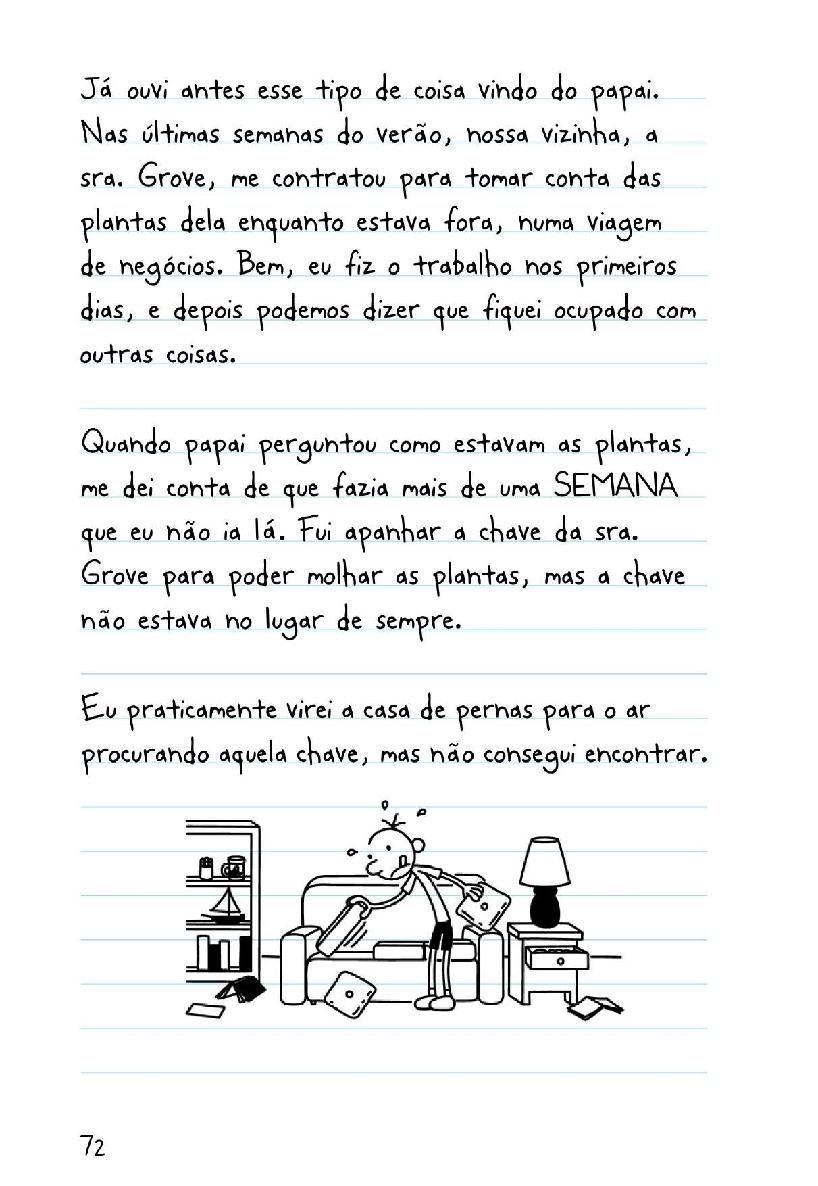 Já ouvi antes esse tipo de coisa vindo do papai.
Nas últimas semanas do verão, nossa vizinha, a
sra. Grove, me contratou para tomar conta das
plantas dela enquanto estava fora, numa viagem
de negócios. Bem, eu fiz o trabalho nos primeiros
dias, e depois podemos dizer que fiquei ocupado com
outras coisas.
Quando papai perguntou como estavam as plantas,
me dei conta de que fazia mais de uma SEMANA
que eu não ia lá. Fui apanhar a chave da sra.
Grove para poder molhar as plantas, mas a chave
não estava no lugar de sempre.
Eu praticamente virei a casa de pernas para o ar
procurando aquela chave, mas não consegui encontrar.
72